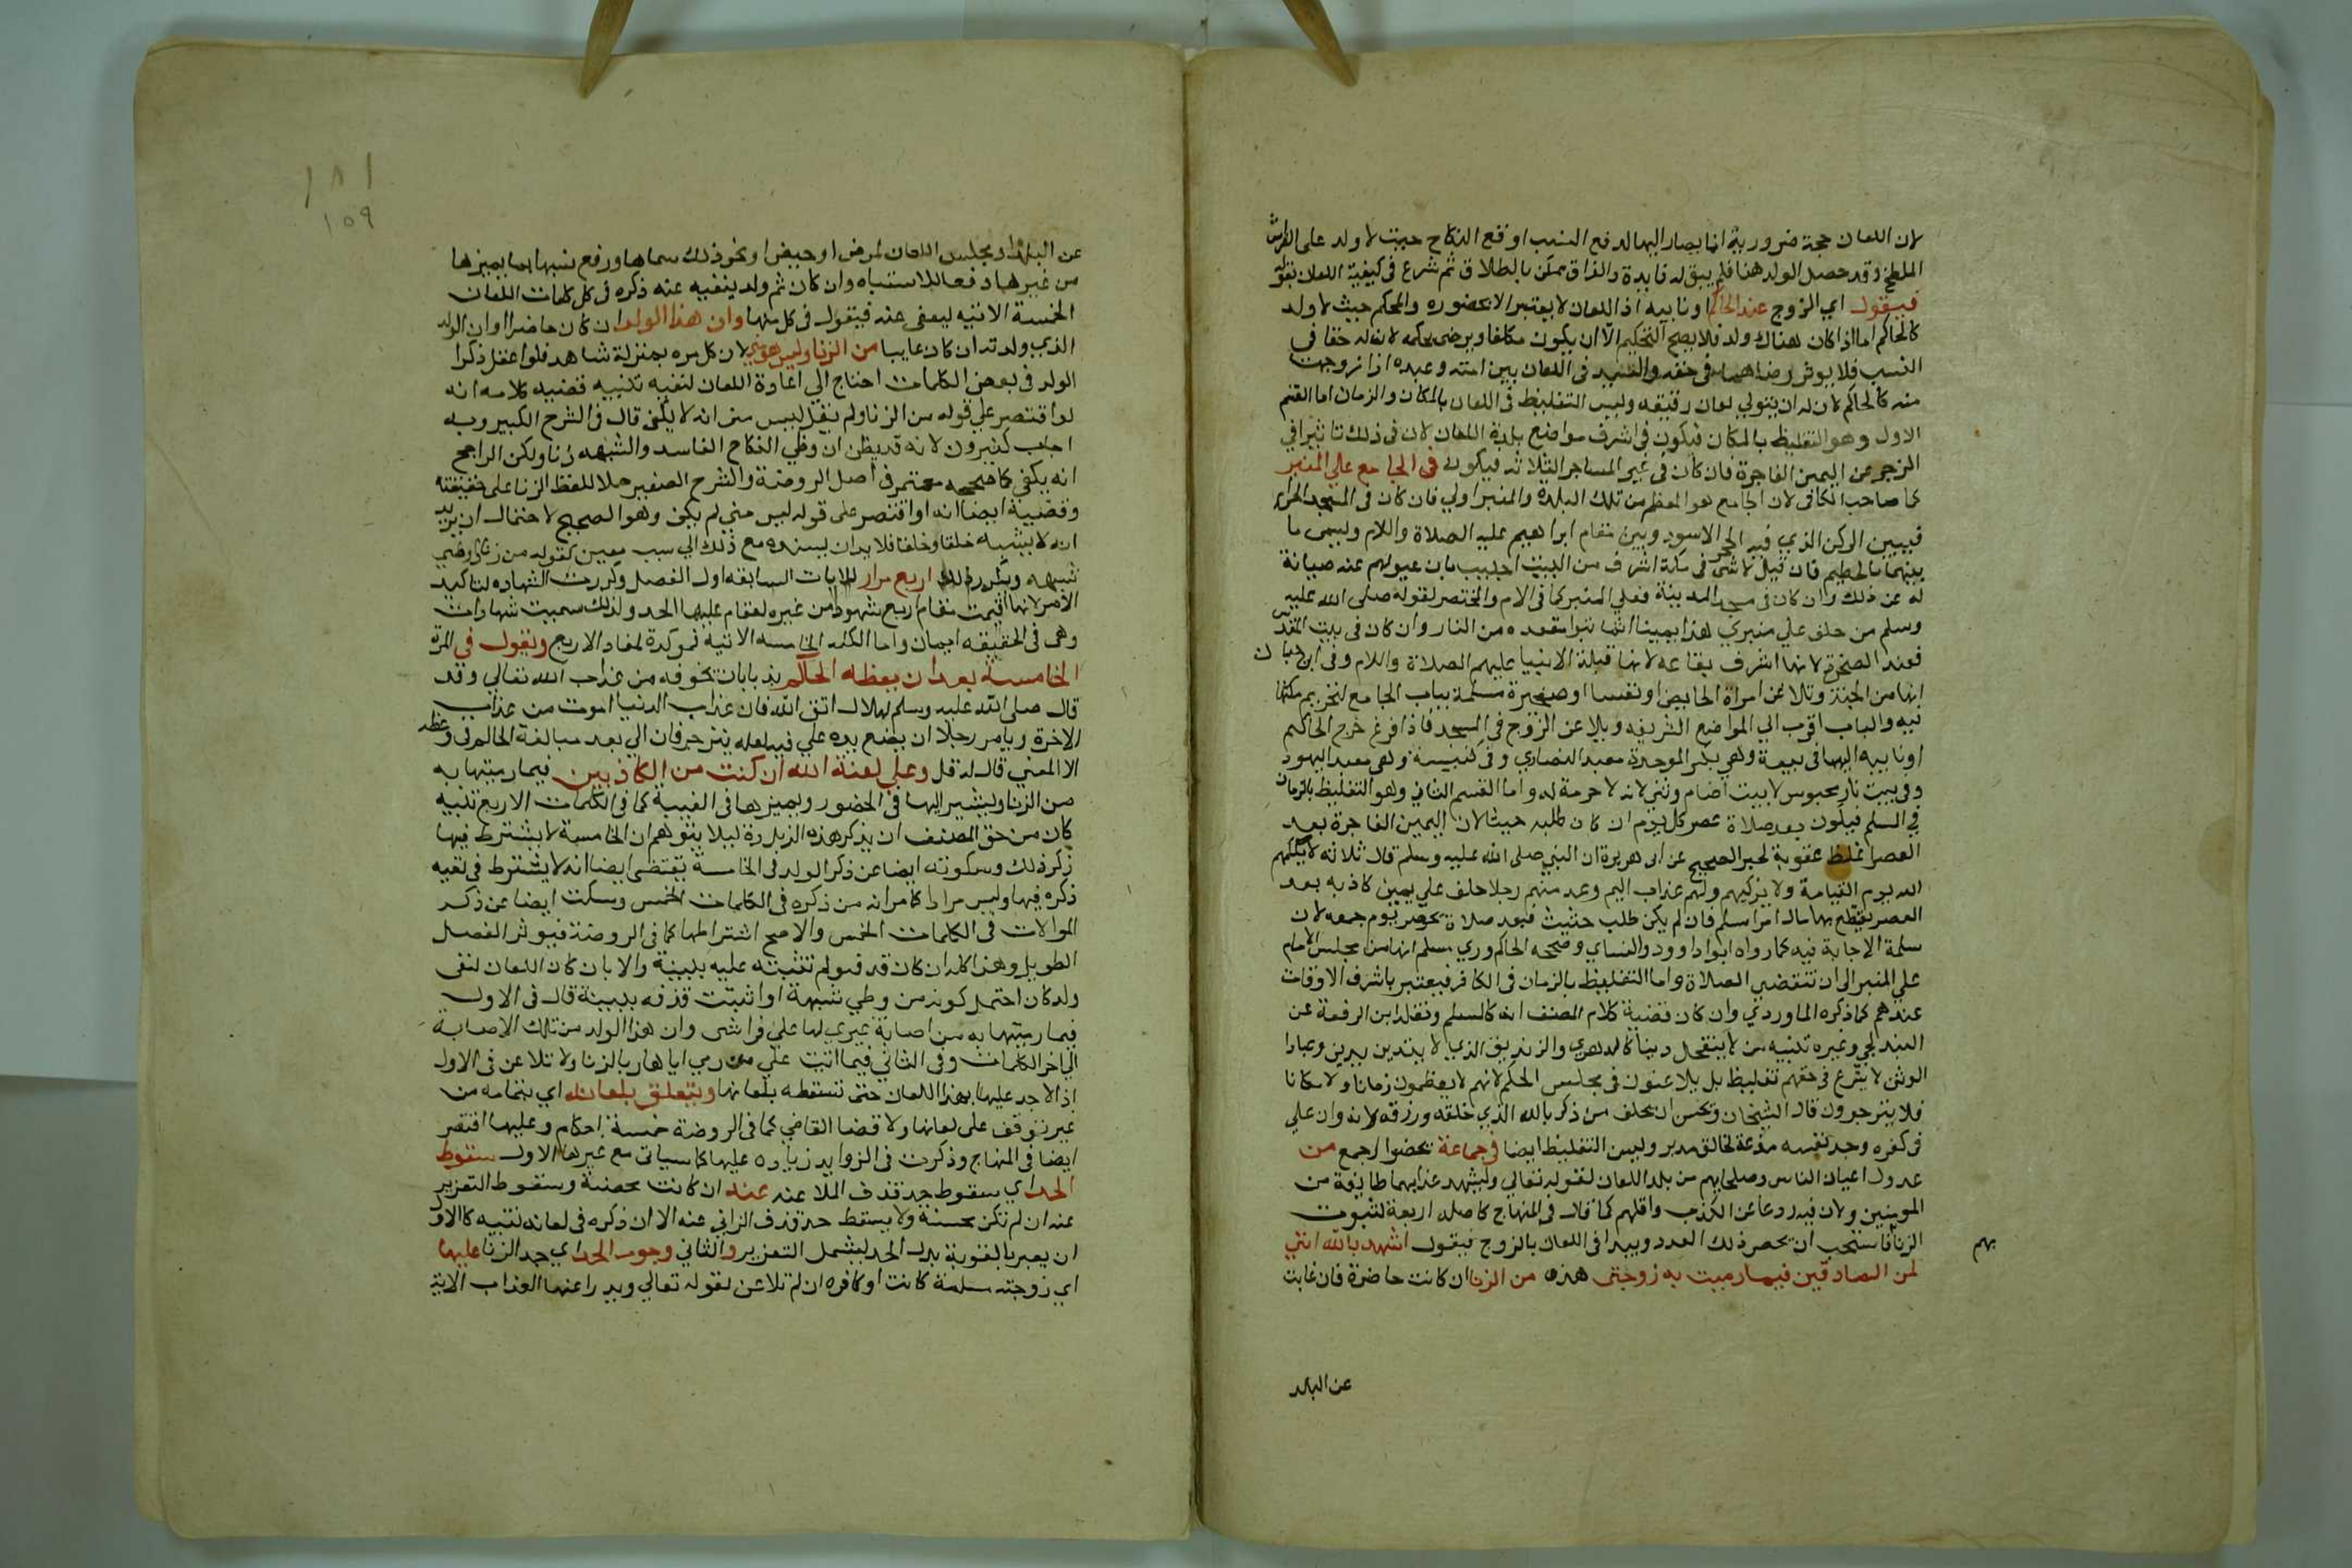 لان اللعان حجة ضرورية انما يصار اليها لدفع النسب او قطع النكاح حيث لا ولد على الفراش
الملطخ وقد حصل الولد هنا فلم يبق له فايدة والفراق ممكن بالطلاق ثم شرع في كيفية اللعان بقوله
فيقول اي الزوج عند الحاكم او نايبه اذ اللعان لا يعتبر الا بحضوره والمحكم حيث لا ولد
كالحاكم اما اذا كان هناك ولد فلا يصح التحكيم الا ان يكون مكلفا ويرضى بحكمه لان له حقا في
النسب فلا يوثر رضاهما في حقه والسيد في اللعان بين امته وعبده اذا زوجت
منه كالحاكم لان له ان يتولي لعان رقيقه وليس التغليظ في اللعان بالمكان والزمان اما القسم
الاول وهو التغليظ بالمكان فيكون في اشرف مواضع بلدة اللعان لان في ذلك تاثيرا في
الزجر عن اليمين الفاجرة فان كان في غير المساجد الثلاثه فيكون في الجامع علي المنبر
كما صاحب الكافى لان الجامع هو المعظم من تلك البلده والمنبر اولي فان كان في المسجد الحرام
فبين الركن الذي فيه الحجر الاسود وبين مقام ابراهيم عليه الصلاة واللام ويسمى ما
بينهما بالحطيم فان قيل لا شى في مكة اشرف من البيت اجيب بان عدولهم عنه صيانة
له عن ذلك وان كان في مسجد المدينة فعلي المنبر كما في الام والمختصر لقوله صلى الله عليه
وسلم من حلف علي منبري هذا يمينا اثما تبوا مقعده من النار وان كان في بيت المقدس
فعند الصخرة لانها اشرف بقاعه لانها قبلة الانبيا عليهم الصلاة واللام وفي ابن حبان
انها من الجنة وتلاعن امراة الحايض او نفسا او صغيرة مسلمة بباب الجامع لتحريم مكثها
فيه والباب اقرب الي المواضع الشريفه ويلاعن الزوج في المسجد فاذا فرغ خرج الحاكم
او نايبه اليها في بيعة وهي بكسر الموحدة معبد النصاري وفي كنيسة وهي معبد اليهود
وفي بيت نار مجوس لا بيت اصنام وثني لانه لا حرمة له واما القسم الثاني وهو التغليظ بالزمان
في المسلم فيكون بعد صلاة عصر كل يوم ان كان طلبه حيثا لان اليمين الفاجرة بعد
العصر اغلظ عقوبة لخبر الصحيح عن ابي هريرة ان النبي صلى الله عليه وسلم قال ثلاثه لا يكلمهم
الله يوم القيامة ولا يزكيهم ولهم عذاب اليم وعد منهم رجلا حلف علي يمين كاذبه بعد
العصر يقتطع بها مال امرا مسلم فان لم يكن طلب حثيث فبعد صلاة عصر يوم جمعه لان
سلمة الاجابة فيه كما رواه ابوا داوود والنساي وصححه الحاكم وري مسلم انها من مجلس الامام
علي المنبر الى ان تنقضي الصلاة واما التغليظ بالزمان في الكافر فيعتبر باشرف الاوقات
عندهم كما ذكره الماوردي وان كان قضية كلام المصنف انه كالمسلم ونقله ابن الرفعة عن
البندلجي وغيره تنبيه من لا ينتحل دينا كالدهري والزنديق الذي لا يتدين بدين وعبادا
الوثن لا يشرع في حقهم تغليظ بل يلاعنون في مجلس الحكم لانهم لا يعظمون زمانا ولا مكانا
فلا ينزجرون قال الشيخان ويحسن ان يحلف من ذكر بالله الذي خلقه ورزقه لانه وان علي
في كفره وجد نفسه مذعنة لخالق مدبر وليس التغليظ ايضا في جماعة تحضوا اجمع من
عدول اعيان الناس وصلحايهم من بلد اللعان لقوله تعالي وليشهد عذابهما طايفة من
المومنين ولان فيه ردعا عن الكذب واقلهم كما قال في المنهاج كاصله اربعة لثبوت
الزنا فاستحب ان يحصر ذلك العدد ويبدا في اللعان بالزوج فيقول اشهد بالله انني
بهم
لمن الصادقين فيما رميت به زوجتي هذه من الزنا ان كانت حاضرة فان غابت
عن البلد
١٨١
١٥٩
عن البلد او مجلس اللعان لمرض او حيض او نحو ذلك سماها ورفع نسبها بما يميزها
من غيرها دفعا للاشتباه وان كان ثم ولد ينفيه عنه ذكره في كل كلمات اللعان
الخمسة الاتيه لينفى عنه فيقول في كل منها وان هذا الولد ان كان حاضرا او ان الولد
الذي ولدته ان كان غايبا من الزنا وليس هو مني لان كل مره بمنزلة شاهد فلو اغفل ذكرا
الولد في بعض الكلمات احتاج الي اعادة اللعان لنفيه تنبيه قضيه كلامه انه
لو اقتصر علي قوله من الزنا ولم يقل ليس مني انه لا يكفي قال في الشرح الكبير وبه
اجاب كثيرون لانه قد يظن ان وطي النكاح الفاسد والشبهه زنا ولكن الراجح
انه يكفي كما صححه في اصل الروضة والشرح الصغير حملا للفظ الزنا على حقيقته
وقضية ايضا انه لو اقتصر على قوله ليس مني لم يكن وهو الصحيح لاحتمال ان يريد
انه لا يشبهه خلقا وخلقا فلا بد ان يسنده مع ذلك الي سبب معين كقوله من زنا او وطي
شبهه ويكرر ذلك اربع مرار للايات السابقه اول الفصل وكررت الشهاده لتاكيد
الامر لانها اقيمت مقام اربع شهود من غيره ليقام عليها الحد ولذلك سميت شهادات
وهي في الحقيقه ايمان واما الكلمه الخامسه الاتيه فموكدة لمفاد الاربع ويقول في المرة
الخامسة بعد ان يعظه الحاكم ندبا بان يخوفه من عذاب الله تعالي وقد
قال صلى الله عليه وسلم لهلال اتق الله فان عذاب الدنيا اهون من عذاب
الاخرة ويامر رجلا ان يضع يده علي فيه لعله ينزجر فان ابي بعد مبالغة الحاكم في وعظه
الا المضي قال له قل وعلي لعنة الله ان كنت من الكاذبين فيما رميتها به
من الزنا ويشير اليها في الحضور ويميزها في الغيبة كما في الكلمات الاربع تنبيه
كان من حق المصنف ان يذكر هذه الزيادة ليلا يتوهم ان الخامسة لا يشترط فيها
ذكر ذلك وسكوته ايضا عن ذكر الولد في الخامسة يقتضي ايضا انه لا يشترط في نفيه
ذكره فيها وليس مرادا كما مر انه من ذكره في الكلمات الخمس وسكت ايضا عن ذكر
الموالات في الكلمات الخمس والاصح اشتراطها كما في الروضة فيوثر الفصل
الطويل وهذا كله ان كان قذف ولم تثبته عليه ببينة والا بان كان اللعان لنفي
ولد كان احتمل كونه من وطي شبهة او اثبتت قذفه ببينة قال في الاول
فيما رميتها به من اصابة غيري لها علي فراشي وان هذا الولد من تلك الاصابة
الي اخر الكلمات وفي الثاني فيما اثبت علي من رمي اياها بالزنا ولا تلاعن في الاول
اذ لا حد عليها بهذا اللعان حتى تسقطه بلعانها ويتعلق بلعانه اي بتمامه من
غير توقف على لعانها ولا قضا القاضي كما في الروضة خمسة احكام وعليها اقتصر
ايضا في المنهاج وذكرت في الزوايد زيادة عليها كما سياتي مع غيرها الاول سقوط
الحد اي سقوط حد قذف الملاعنه عنه ان كانت محصنة وسقوط التعزير
عنه ان لم تكن محسنة ولا يسقط حد قذف الزاني عنه الا ان ذكره في لعانه تنبيه كالاول
ان يعبر بالعقوبة بدل الحد ليشمل التعزير والثاني وجوب الحد اي حد الزنا عليها
اي زوجته مسلمة كانت او كافره ان لم تلاعن لقوله تعالي ويدرا عنها العذاب الاية